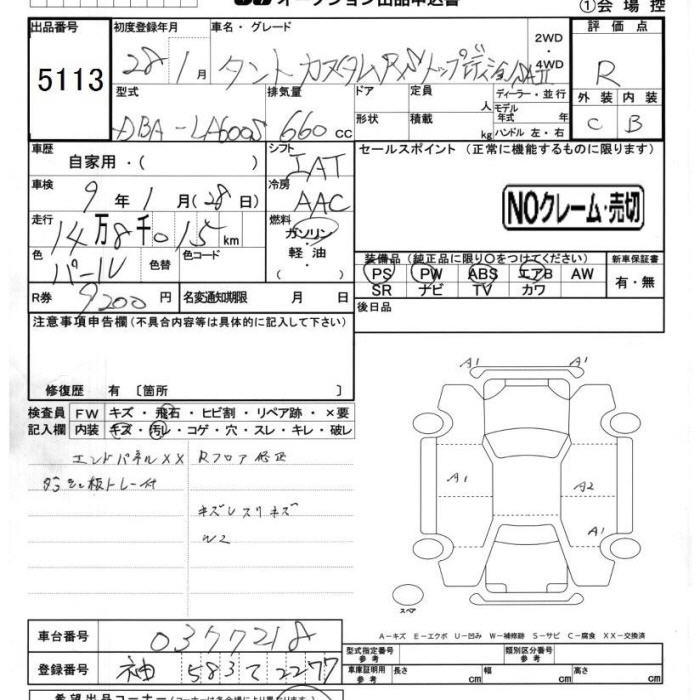 オークション出品申込書
①会場控
出品番号 初度登録年月 車名・グレード 評価点
5113 28年1月 タント カスタムRSトップエディションSAⅡ 2WD・4WD R
型式 排気量 ドア 定員 人 ディーラー・並行 外装 内装
DBA-LA600S 660cc 形状 積載 kg モデル年式 年 ハンドル 左・右 C B
車歴 自家用・( ) シフト IAT セールスポイント (正常に機能するものに限ります)
車検 9年1月(28日) 冷房 AAC
NOクレーム・売切
走行 14万8千015km 燃料 ガソリン・軽油
色 パール 色替 色コード
装備品 (純正品に限り○をつけてください) 新車保証書
PS PW ABS エアB AW 有・無
SR ナビ TV カワ
R券 9200円 名変通知期限 月 日 後日品
注意事項申告欄 (不具合内容等は具体的に記入して下さい)
修復歴 有 〔箇所 〕
検査員記入欄 FW キズ・飛石・ヒビ割・リペア跡・×要
内装 キズ・汚レ・コゲ・穴・スレ・キレ・破レ
エンドパネルXX Rフロア修正
トレー付
キズレスリキズ
W2
A1 A1
A1 A2
A1
スペア
A-キズ E-エクボ U-凹み W-補修跡 S-サビ C-腐食 XX-交換済
車台番号 0377218
登録番号 神 583 て 2277
型式指定番号 参考 類別区分番号 参考
車庫証明用 参考 長さ cm 幅 cm 高さ cm
希望出品コーナー